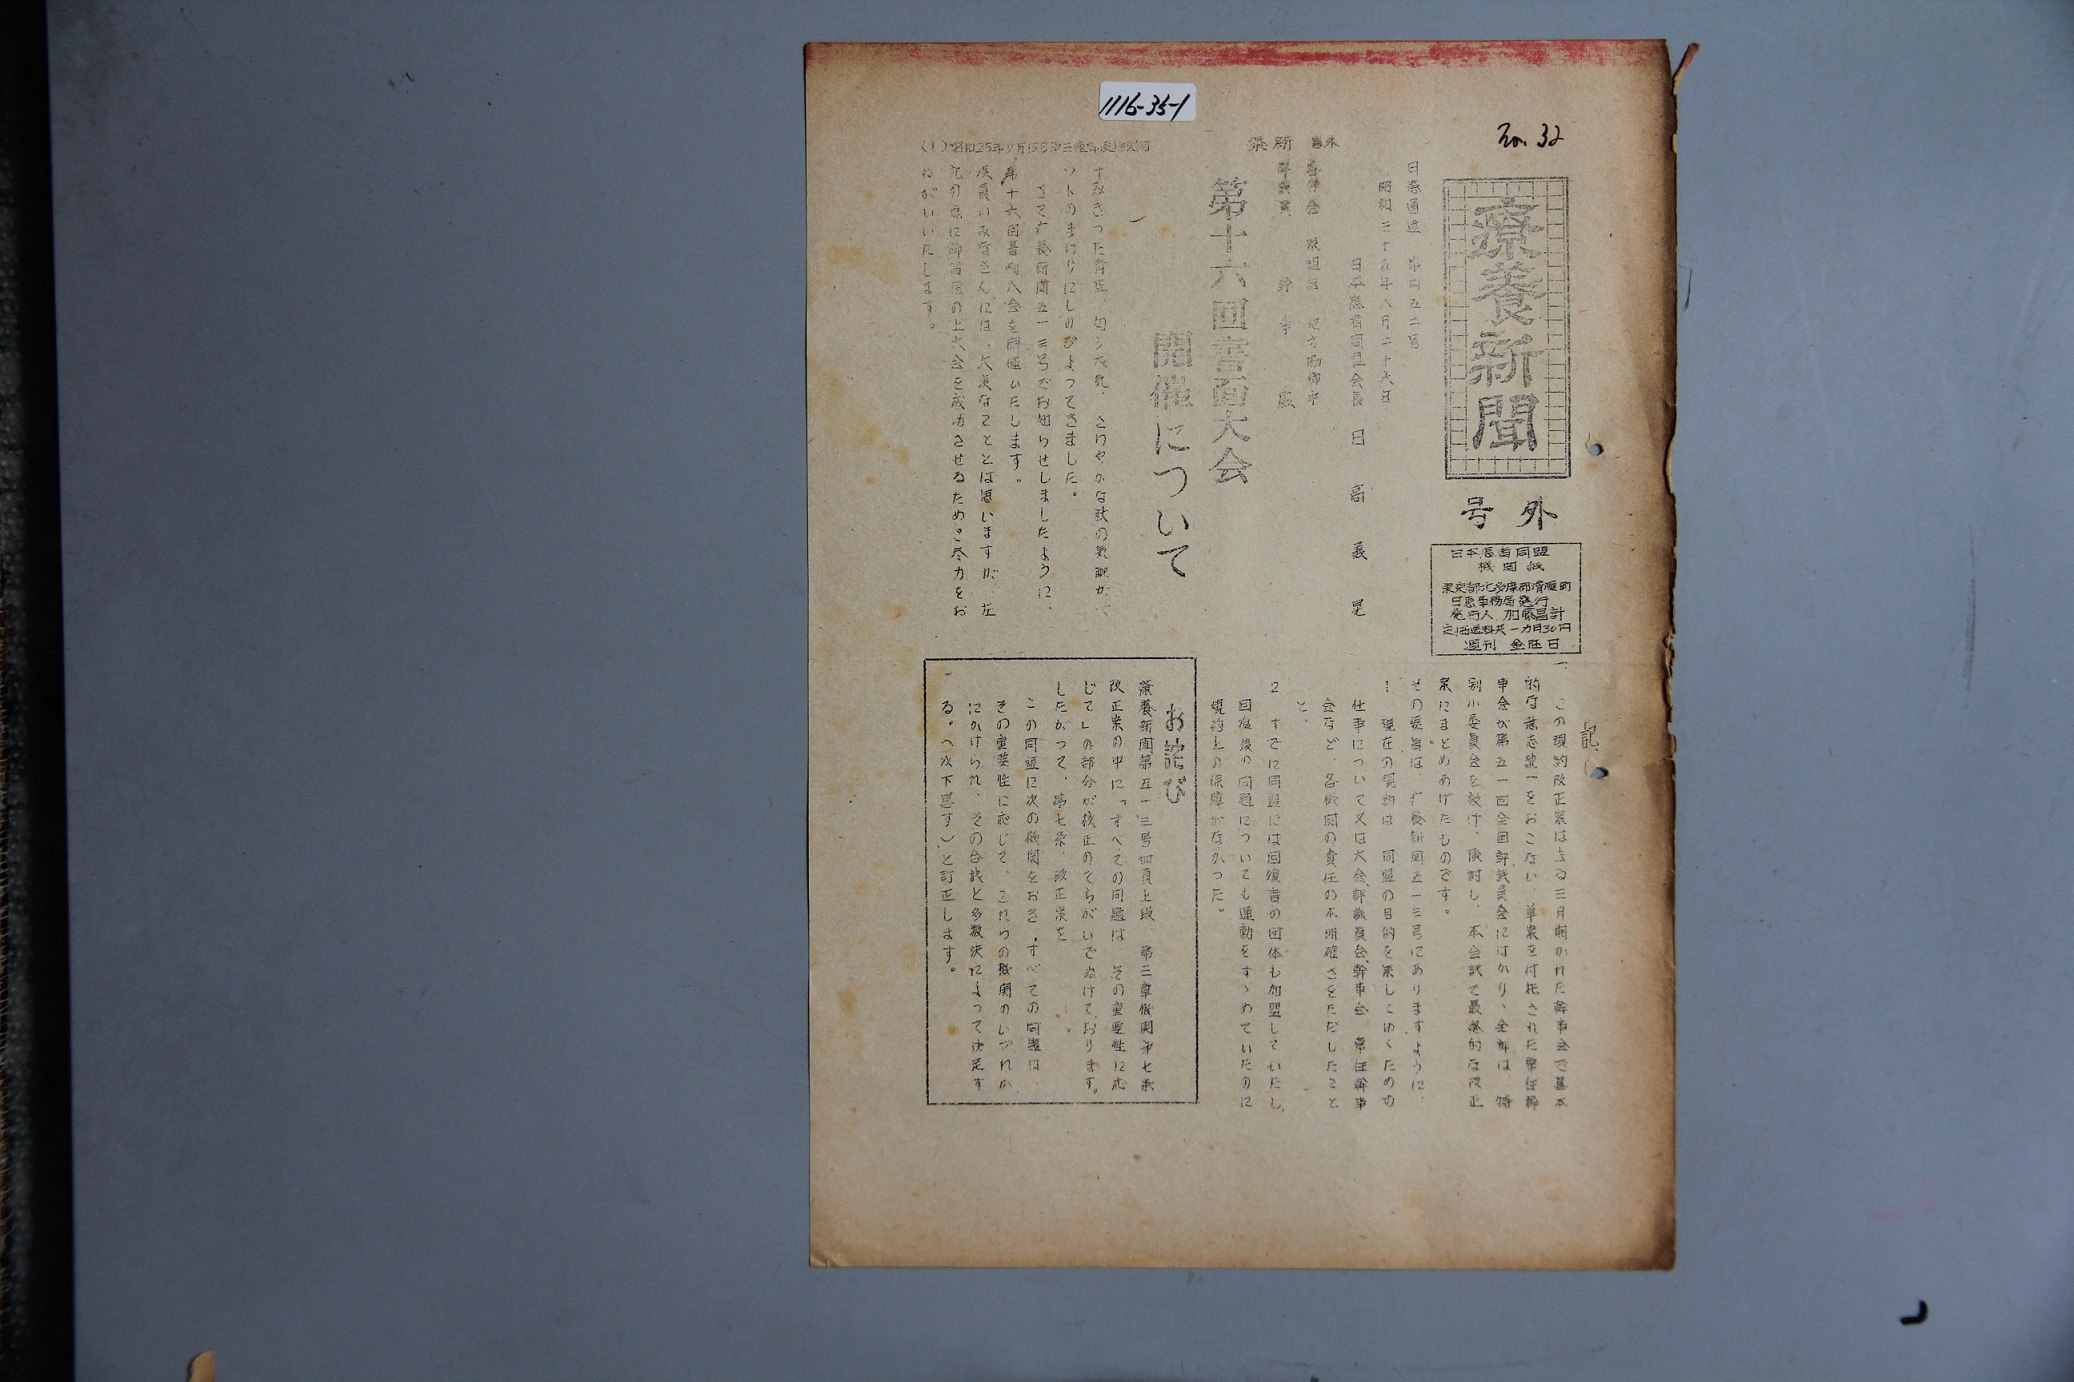 1116-35-1
No. 32
(1) 昭和25年9月15日第三種郵便物認可
療新 号外
療養新聞
号外
日本患者同盟
機関紙
東京都北多摩郡清瀬町
日患事務局発行
発行人 加藤昌計
定価送料共一カ月30円
週刊 金曜日
日患通達 第四五二号
昭和三十五年八月二十六日
日本患者同盟会長 日高義晃
評議員 幹事 殿
第十六回書面大会
開催について
すみきった青空、匂う大気、さわやかな秋の気配が、
ソトのまわりにしのびよってきました。
さて、療養新聞五一三号でお知らせしましたように、
第十六回書面大会を開催いたします。
役員のみなさんには、大変なこととは思いますが、左
記の点に御留意の上大会を成功させるためご尽力をお
ねがいいたします。
記
一、この規約改正案は去る三月開かれた幹事会で基本
的な意志統一をおこない、草案を付托された常任幹
事会が第五一回全国評議員会にはかり、全評は、特
別小委員会を設け、検討し、本会議で最終的な改正
案にまとめあげたものです。
その要旨は、療養新聞五一三号にありますように、
1 現在の規約は、同盟の目的を果してゆくための
仕事について又は大会、評議員会、幹事会、常任幹事
会など、各機関の責任の不明確さをただしたこと
と、
2 すでに同盟には回復者の団体も加盟していたし、
回復後の問題についても運動をすゝめていたのに
規約上の保障がなかった。
お詫び
療養新聞第五一三号四頁上段 第三章機関第七条
改正案の中に「すべての問題は、その重要性に応
じて」の部分が校正のてちがいでぬけております。
したがって、第七条、改正案を、
この同盟に次の機関をおき、すべての問題は、
その重要性に応じて、これらの機関のいづれか
にかけられ、その合議と多数決によって決定す
る。(以下略す)と訂正します。